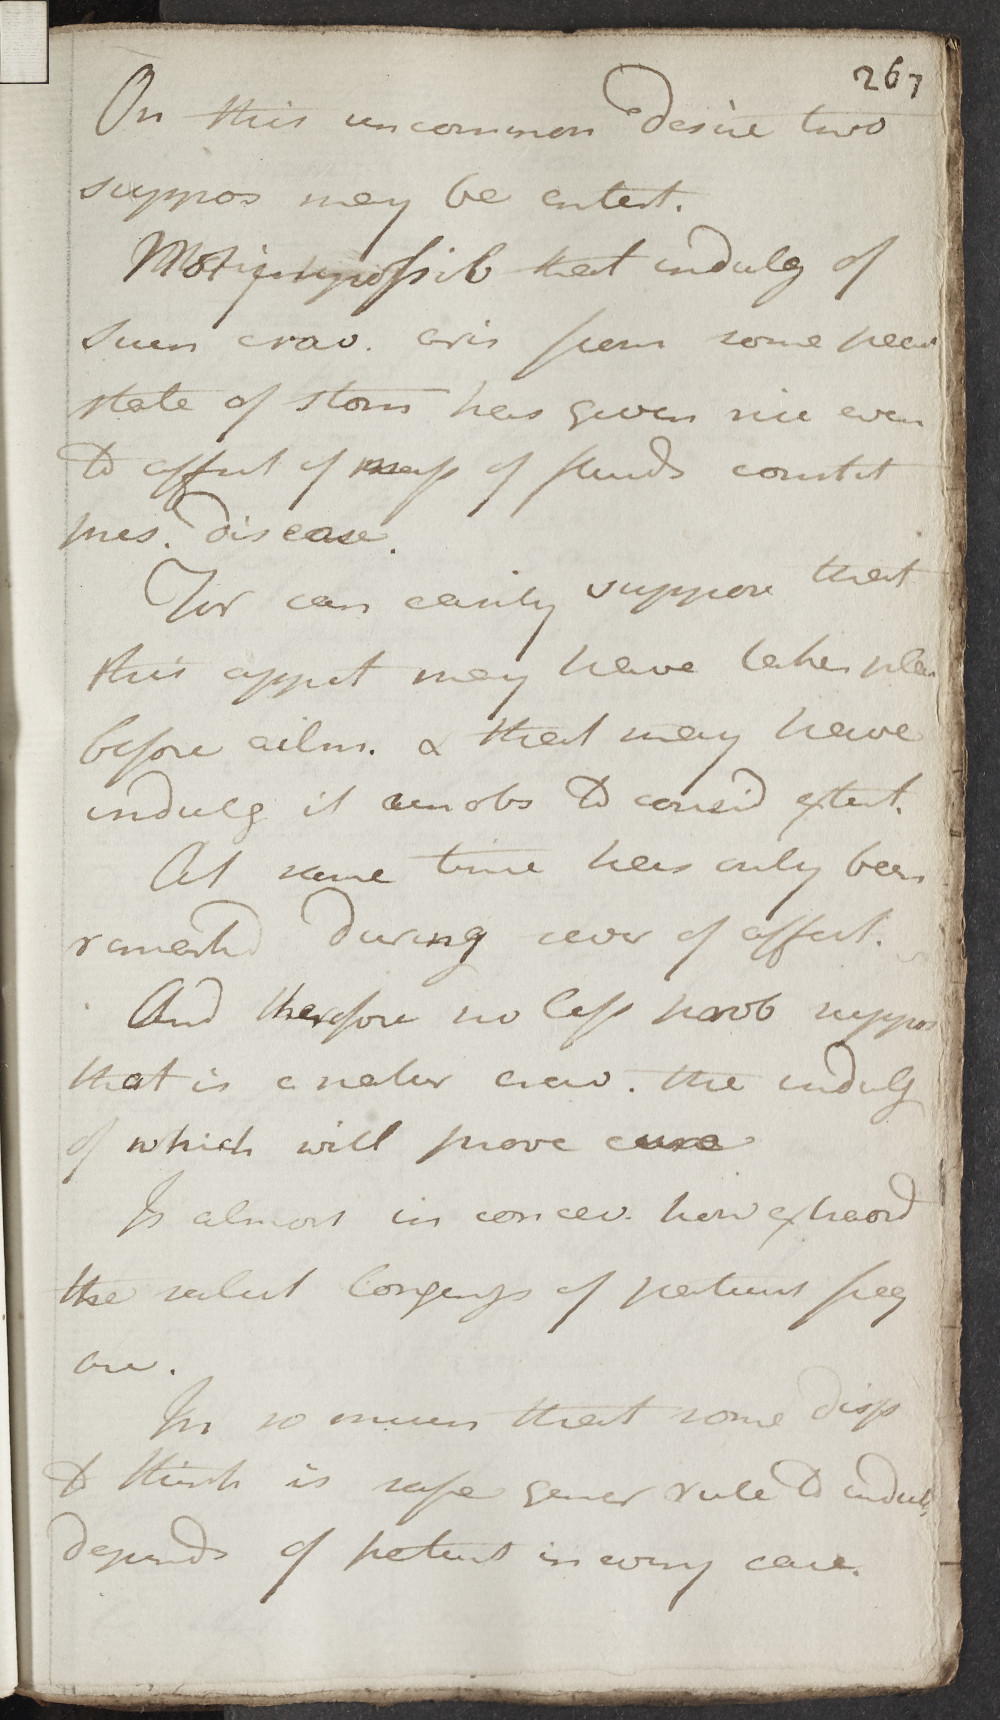 267
On this uncommon desire two
suppos may be entert.
Not impossib that indulg of
such crav. aris from some pecul
state of stom has given rise even
to affect of mass of fluids constit
pres. disease.
For can easily suppose that
this appet may have taken place
before ailm. & that may have
indulg it unobs to consid extent.
At same time has only been
remarkd during cour of affect.
And therefore no less prob suppos
that is a natur crav. the indulg
of which will prove cure
Is almost in conceiv. how extraord
the salut longings of patients freq
are.
In so much that some disp
to think is safe gener rule to indulg
depends of patient in every case.